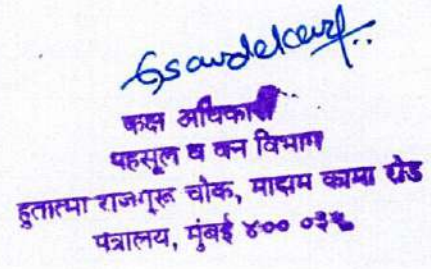 कक्ष अधिकारी
महसूल व वन विभाग
हुतात्मा राजगुरू चोक, मादाम कामा रोड
मंत्रालय, मुंबई ४०० ०३२